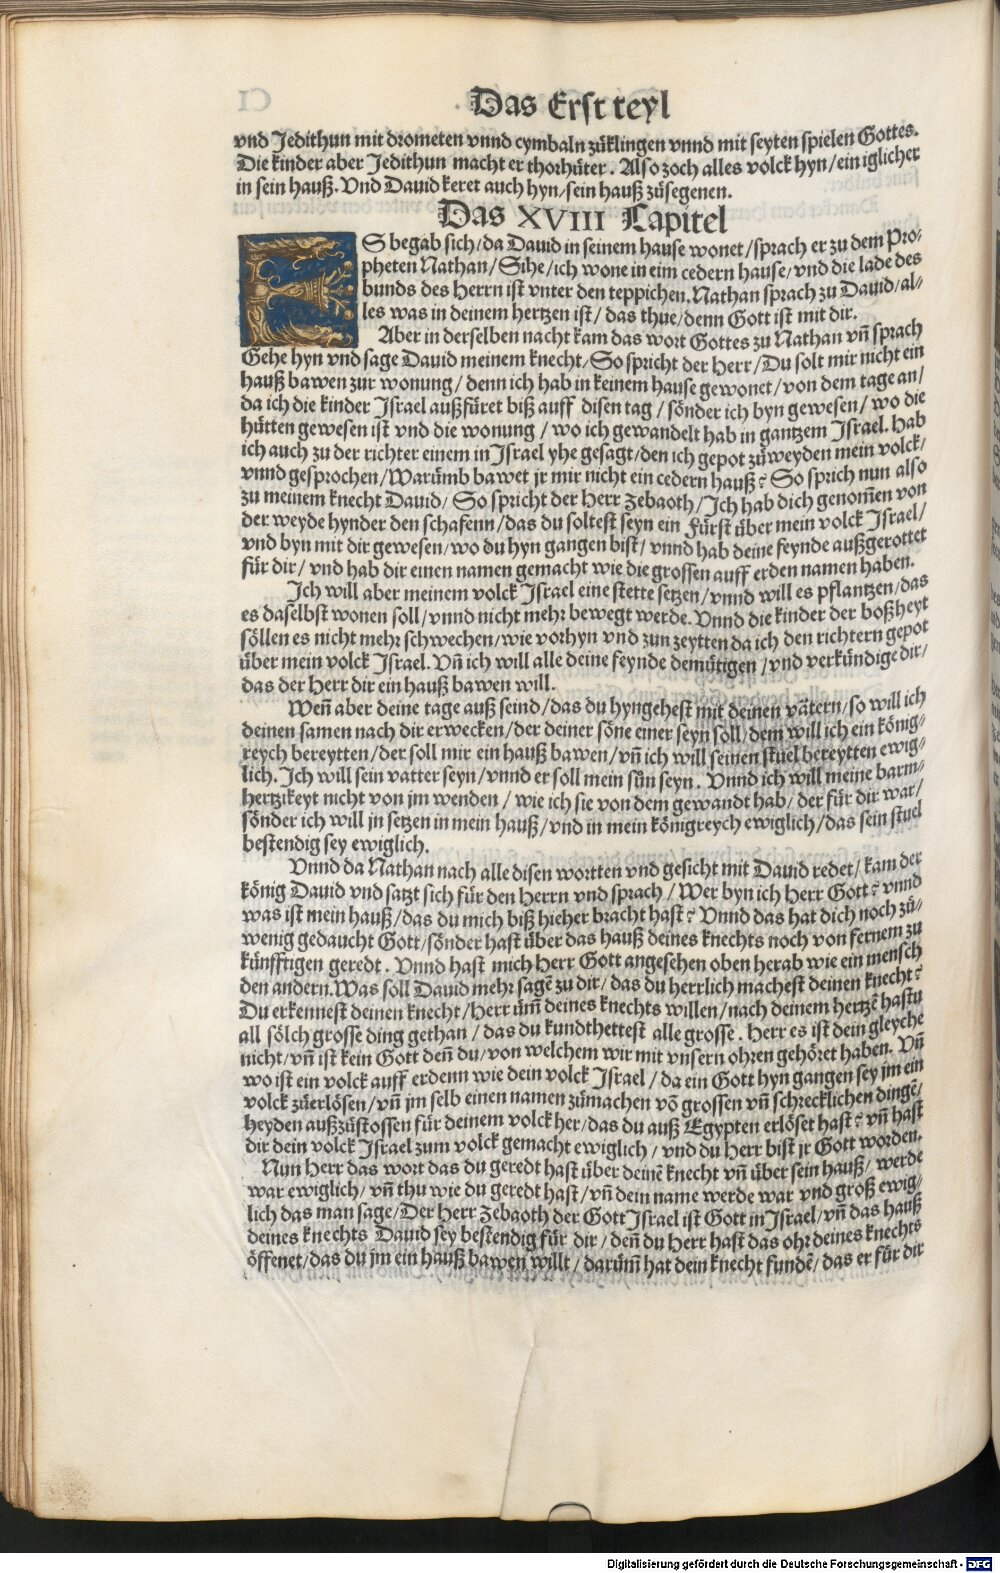 Das Erst teyl
vnd Jedithun mit drometen vnnd cymbaln zůklingen vnnd mit seyten spielen Gottes.
Die kinder aber Jedithun macht er thorhüter. Also zoch alles volck hyn/ein iglicher
in sein hauß. Vnd Dauid keret auch hyn/sein hauß zůsegenen.
Das XVIII Capitel
ES begab sich/da Dauid in seinem hause wonet/sprach er zu dem Pro-
pheten Nathan/Sihe/ich wone in eim cedern hause/vnd die lade des
bunds des Herrn ist vnter den teppichen. Nathan sprach zu Dauid/al-
les was in deinem hertzen ist/das thue/denn Gott ist mit dir.
Aber in derselben nacht kam das wort Gottes zu Nathan vñ sprach
Gehe hyn vnd sage Dauid meinem knecht/So spricht der Herr/Du solt mir nicht ein
hauß bawen zur wonung/denn ich hab in keinem hause gewonet/von dem tage an/
da ich die kinder Israel außfüret biß auff disen tag/sönder ich byn gewesen/wo die
hütten gewesen ist vnd die wonung/wo ich gewandelt hab in gantzem Israel. Hab
ich auch zu der richter einem in Israel yhe gesagt/den ich gepot zůweyden mein volck/
vnnd gesprochen/Warümb bawet jr mir nicht ein cedern hauß? So sprich nun also
zu meinem knecht Dauid/So spricht der Herr Zebaoth/Ich hab dich genom̃en von
der weyde hynder den schafenn/das du soltest seyn ein Fürst über mein volck Israel/
vnd byn mit dir gewesen/wo du hyn gangen bist/vnnd hab deine feynde außgerottet
für dir/vnd hab dir einen namen gemacht wie die grossen auff erden namen haben.
Ich will aber meinem volck Israel eine stette setzen/vnnd will es pflantzen/das
es daselbst wonen soll/vnnd nicht mehr bewegt werde. Vnnd die kinder der boßheyt
söllen es nicht mehr schwechen/wie vorhyn vnd zun zeytten da ich den richtern gepot
über mein volck Israel. Vñ ich will alle deine feynde demütigen/vnd verkündige dir/
das der Herr dir ein hauß bawen will.
Weñ aber deine tage auß seind/das du hyngehest mit deinen vätern/so will ich
deinen samen nach dir erwecken/der deiner söne einer seyn soll/dem will ich ein könig-
reych bereytten/der soll mir ein hauß bawen/vñ ich will seinen stuel bereytten ewig-
lich. Ich will sein vatter seyn/vnnd er soll mein sůn seyn. Vnnd ich will meine barm-
hertzikeyt nicht von jm wenden/wie ich sie von dem gewandt hab/der für dir war/
sönder ich will jn setzen in mein hauß/vnd in mein königreych ewiglich/das sein stuel
bestendig sey ewiglich.
Vnnd da Nathan nach alle disen wortten vnd gesicht mit Dauid redet/kam der
könig Dauid vnd satzt sich für den Herrn vnd sprach/Wer byn ich Herr Gott? vnnd
was ist mein hauß/das du mich biß hieher bracht hast? Vnnd das hat dich noch zů-
wenig gedaucht Gott/sönder hast über das hauß deines knechts noch von fernem zu
künfftigen geredt. Vnnd hast mich Herr Gott angesehen oben herab wie ein mensch
den andern. Was soll Dauid mehr sagẽ zu dir/das du herrlich machest deinen knecht?
Du erkennest deinen knecht/Herr üm̃ deines knechts willen/nach deinem hertzẽ hastu
all sölch grosse ding gethan/das du kundthettest alle grosse. Herr es ist dein gleyche
nicht/vñ ist kein Gott deñ du/von welchem wir mit vnsern ohren gehöret haben. Vñ
wo ist ein volck auff erdenn wie dein volck Israel/da ein Gott hyn gangen sey jm ein
volck zůerlösen/vñ jm selb einen namen zůmachen võ grossen vñ schrecklichen dingẽ/
heyden außzůstossen für deinem volck her/das du auß Egypten erlöset hast? vñ hast
dir dein volck Israel zum volck gemacht ewiglich/vnd du Herr bist jr Gott worden.
Nun Herr das wort das du geredt hast über deinẽ knecht vñ über sein hauß/werde
war ewiglich/vñ thu wie du geredt hast/vñ dein name werde war vnd groß ewig-
lich das man sage/Der Herr Zebaoth der Gott Israel ist Gott in Israel/vñ das hauß
deines knechts Dauid sey bestendig für dir/deñ du Herr hast das ohr deines knechts
öffenet/das du jm ein hauß bawen willt/darüm̃ hat dein knecht fundẽ/das er für dir
Digitalisierung gefördert durch die Deutsche Forschungsgemeinschaft - DFG